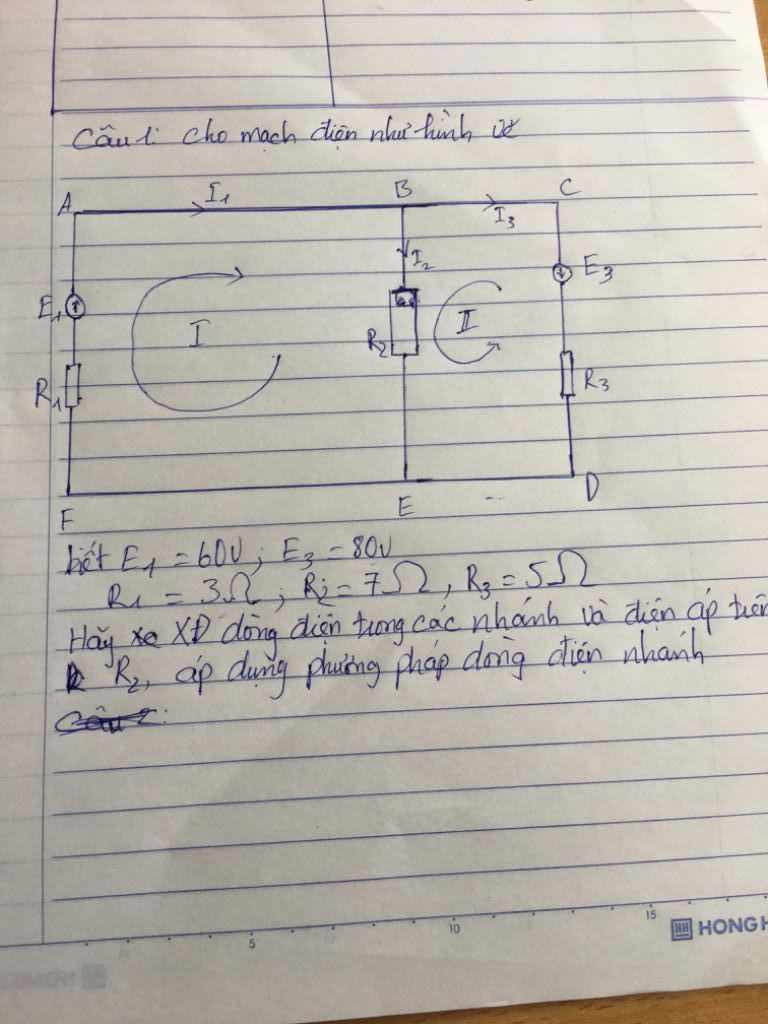 Câu 1: Cho mạch điện như hình vẽ
A I1 B C
I3
I2
E1 E3
I II
R2
R1 R3
F E D
biết E1 = 60V ; E3 = 80V
R1 = 3Ω ; R2 = 7Ω, R3 = 5Ω
Hãy XĐ dòng điện trong các nhánh và điện áp trên
R2, áp dụng phương pháp dòng điện nhánh
Câu 2:
5 10 15
HONG H